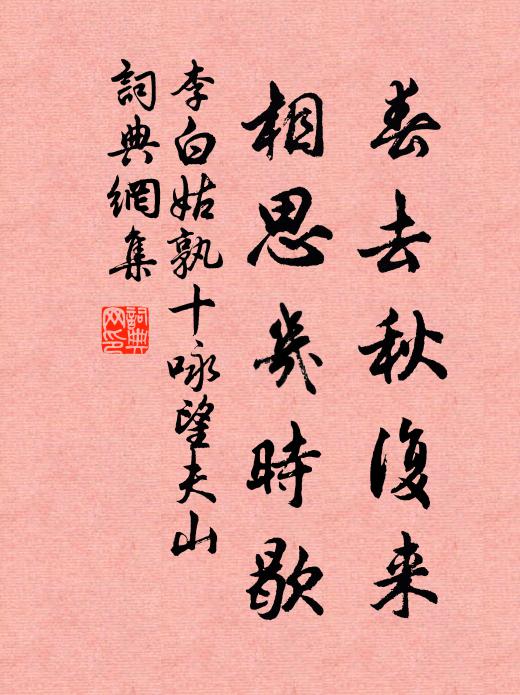 春去秋復来
相思幾時歇
李白姑孰十咏望夫山
詞典網集
詞典网印